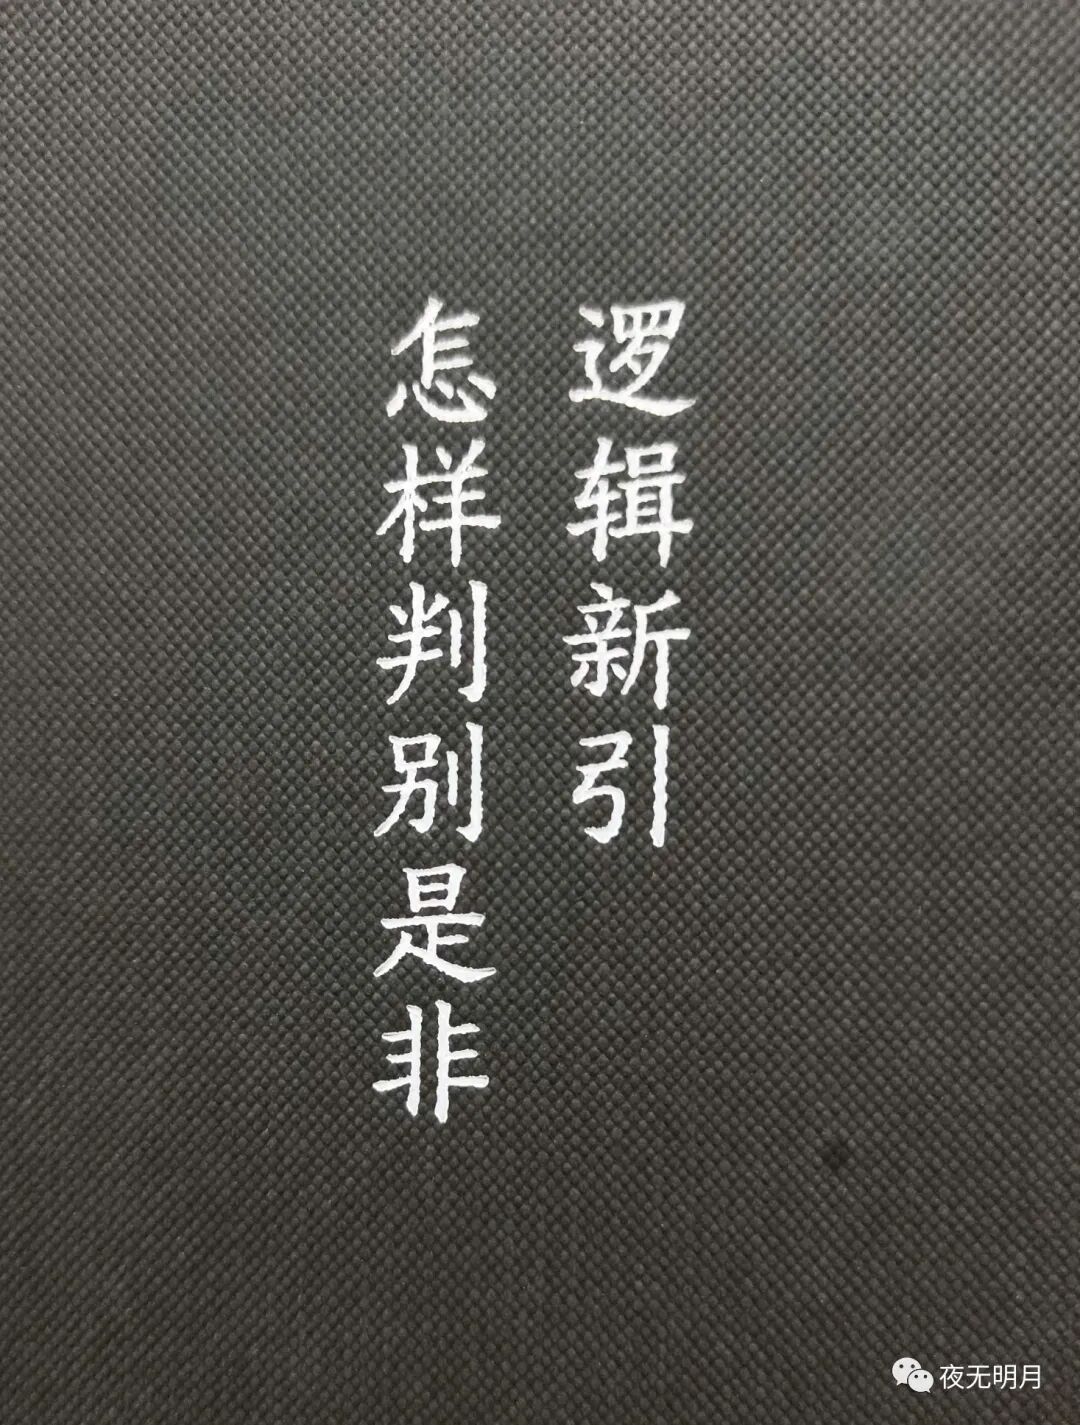 逻辑新引
怎样判别是非
夜无明月